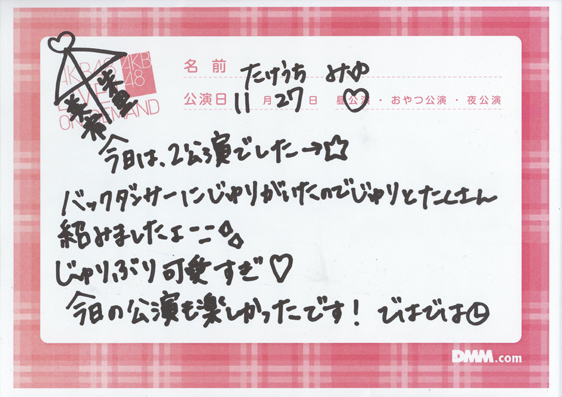 AKB48
LIVE!!
ON DEMAND
AKB
48
美宥
朱里
名前 たけうち みゆ
公演日 11月27日 昼公演・おやつ公演・夜公演
今日は、2公演でした→☆
バックダンサーにじゅりがいたのでじゅりとたくさん
絡みましたよーー
じゅりぶり可愛すぎ♡
今日の公演も楽しかったです! ではでは
DMM.com